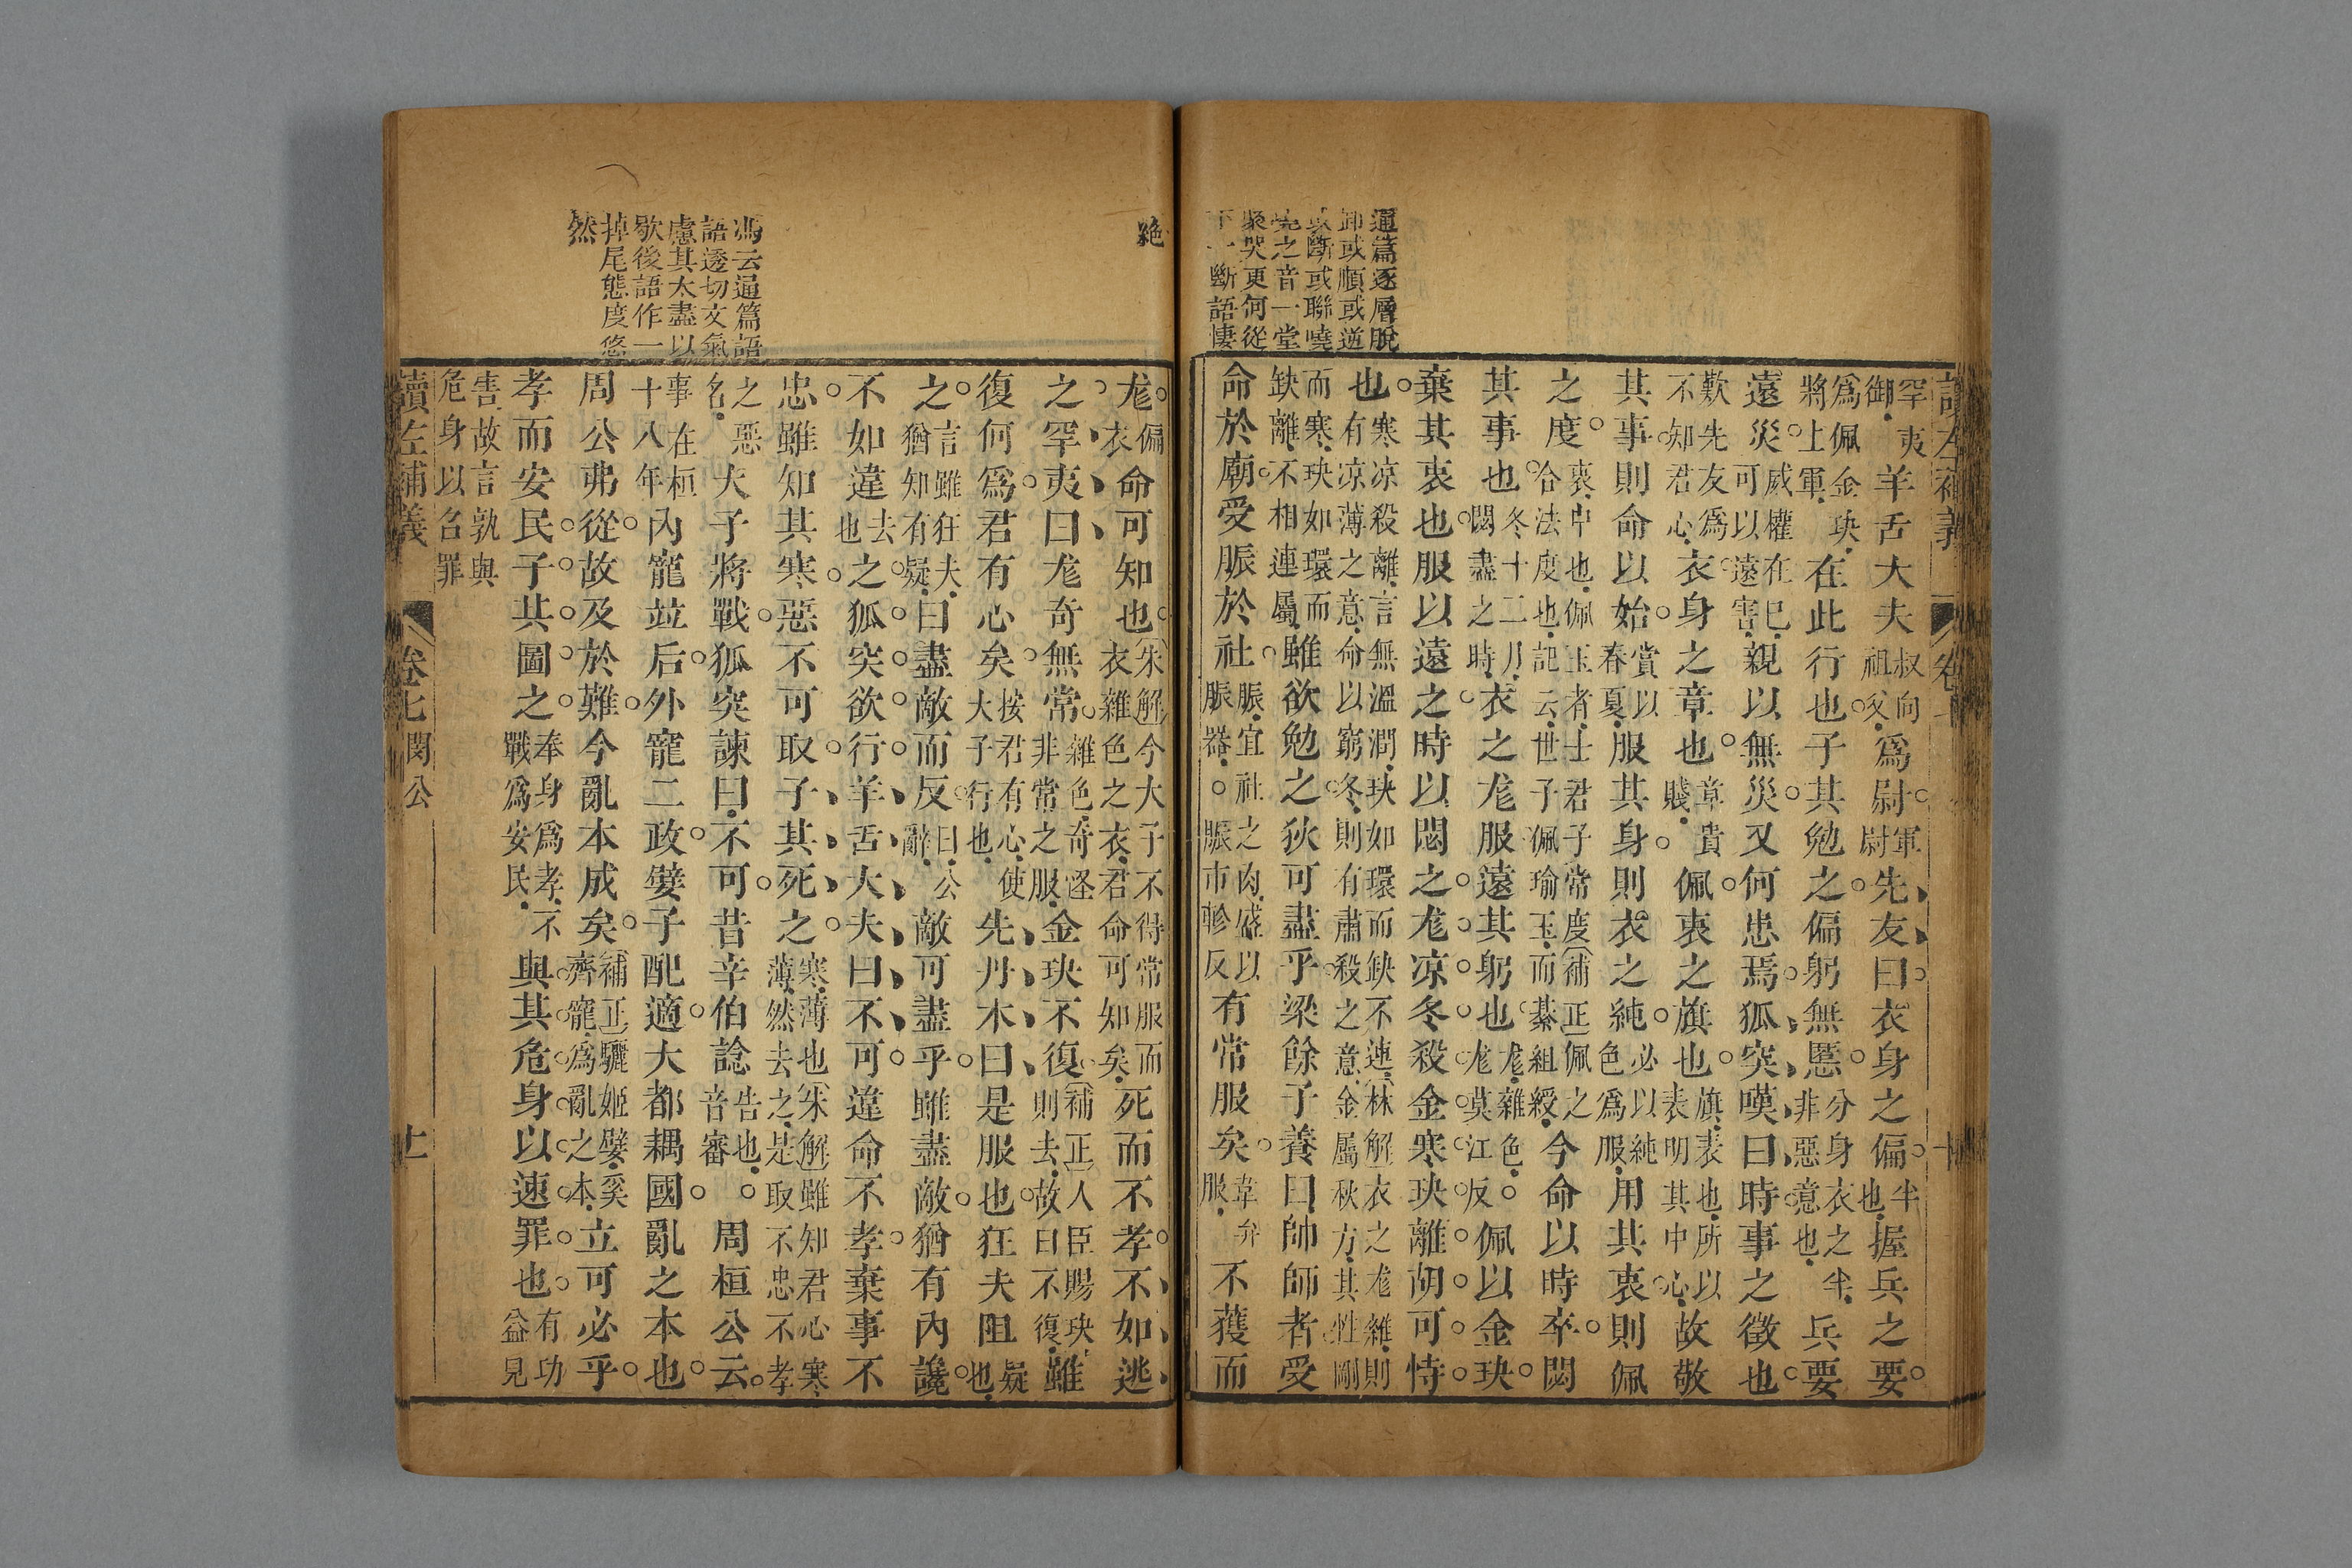 通篇逐層脫
卸或順或逆
或斷或聯嘵
嘵之音一堂
聚哭更何從
下一斷語悽
罕夷御羊舌大夫叔向祖父爲尉軍尉先友曰衣身之偏半也握兵之要
爲佩金玦將上軍在此行也子其勉之偏躬無慝分身衣之半非惡意也兵要
遠災威權在已可以遠害親以無災又何患焉狐突嘆曰時事之徵也
歎先友爲不知君心衣身之章也章貴賤佩衷之旗也旗表也所以表明其中心故敬
其事則命以始賞以春夏服其身則衣之純必以純色爲服用其衷則佩
之度衷中也佩玉者士君子常度補正佩之合法度也記云世子佩瑜玉而綦組綬今命以時卒閟
其事也冬十二月閟盡之時衣之尨服遠其躬也尨雜色。尨莫江反佩以金玦
棄其衷也服以遠之時以閟之尨凉冬殺金寒玦離胡可恃
也寒凉殺離言無溫潤玦如環而缺不連林解衣之尨雜則有凉薄之意命以窮冬則有肅殺之意金屬秋方其性剛
而寒玦如環而缺離不相連屬雖欲勉之狄可盡乎梁餘子養曰帥師者受
命於廟受脤於社脤宜社之肉盛以脤器。脤市軫反有常服矣韋弁服不獲而
絶
馮云通篇語
語透切文氣
慮其太盡以
歇後語作一
掉尾態度悠
然
尨偏衣命可知也朱解今大子不得常服而衣雜色之衣君命可如矣死而不孝不如逃
之罕夷曰尨奇無常雜色奇怪非常之服金玦不復補正人臣賜玦則去故曰不復雖
復何爲君有心矣按君有心使大子行也先丹木曰是服也狂夫阻疑也
之言雖狂夫猶知有疑曰盡敵而反曰公辭敵可盡乎雖盡敵猶有內讒
不如違去也之狐突欲行羊舌大夫曰不可違命不孝棄事不
忠雖知其寒惡不可取子其死之寒薄也朱解雖知君心寒薄然去之是取不忠不孝
之惡名大子將戰狐突諫曰不可昔辛伯諗告也。音審周桓公云
事在桓十八年內寵竝后外寵二政嬖子配適大都耦國亂之本也
周公弗從故及於難今亂本成矣補正驪姬嬖奚齊寵爲亂之本立可必乎
孝而安民子其圖之奉身爲孝不戰爲安民與其危身以速罪也有功益見
害故言孰與危身以召罪
讀左補義 卷七 閔公 十一